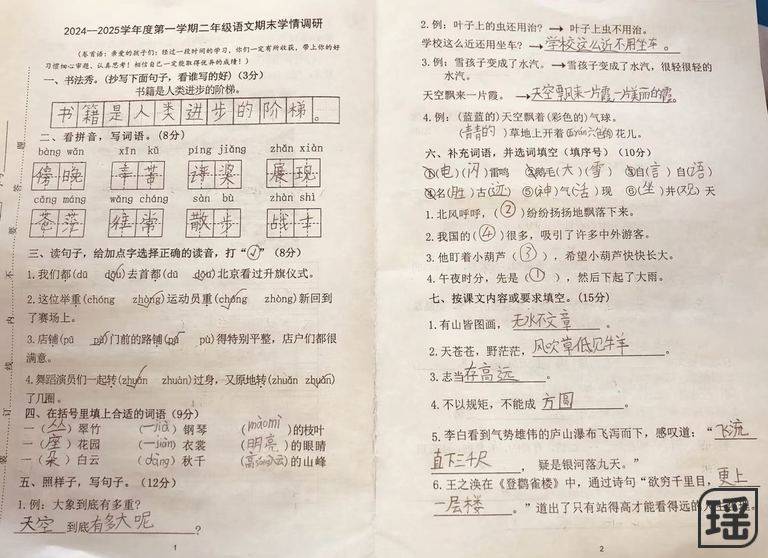 2024—2025学年度第一学期二年级语文期末学情调研
(卷首语：亲爱的孩子们：经过一段时间的学习，你们一定有所收获，带上你的好
习惯细心审题、认真思考！相信自己一定能取得优异的成绩！)
一、书法秀。(抄写下面句子，看谁写的好)（3分）
书籍是人类进步的阶梯。
书籍是人类进步的阶梯。
二、看拼音，写词语。（8分）
bàng wǎn xīn kǔ píng jiǎng zhǎn xiàn
傍晚 辛苦
cāng máng wǎng cháng sàn bù zhàn shì
苍茫 往常 散步 战士
三、读句子，给加点字选择正确的读音，打“√”（8分）
1.我们都(dū dōu)去首都(dū dōu)北京看过升旗仪式。
2.这位举重(chóng zhòng)运动员重(chóng zhòng)新回到
了赛场上。
3.店铺(pū pù)门前的路铺(pū pù)得特别平整，店户们都很
满意。
4.舞蹈演员们一起转(zhuǎn zhuàn)过身，又原地转(zhuǎn zhuàn)
了几圈。
四、在括号里填上合适的词语（9分）
一（丛）翠竹 一（jià）钢琴 （màomì）的枝叶
一（座）花园 一（jiàn）衣裳 （明亮）的眼睛
一（朵）白云 （dàng）秋千 的山峰
五、照样子，写句子。（12分）
1.例：大象到底有多重？
天空到底有多大呢？
1
2.例：叶子上的虫还用治？→叶子上虫不用治。
学校这么近还用坐车？→学校这么近不用坐车。
3.例：雪孩子变成了水汽。→雪孩子变成了水汽，很轻很轻的
水汽。
天空飘来一片霞。→天空飘来一片霞，一片美丽的霞。
4.例：(蓝蓝的)天空飘着(彩色的)气球。
（青青的）草地上开着 花儿。
六、补充词语，并选词填空（填序号）（10分）
①(电)(闪)雷鸣 ②鹅毛(大)(雪) ③自(言)自(语)
④名(胜)古(迹) ⑤(神)气(活)现 ⑥(坐)井(观)天
1.北风呼呼，（②）纷纷扬扬地飘落下来。
2.我国的（④）很多，吸引了许多中外游客。
3.他盯着小葫芦（③），希望小葫芦快快长大。
4.午夜时分，先是（①），然后下起了大雨。
七、按课文内容或要求填空。（15分）
1.有山皆图画，无水不文章。
2.天苍苍，野茫茫，风吹草低见牛羊。
3.志当存高远。
4.不以规矩，不能成方圆。
5.李白看到气势雄伟的庐山瀑布飞泻而下，感叹道：“飞流
直下三千尺，疑是银河落九天。”
6.王之涣在《登鹳雀楼》中，通过诗句“欲穷千里目，更上
一层楼。”道出了只有站得高才能看得远的
2
瑶